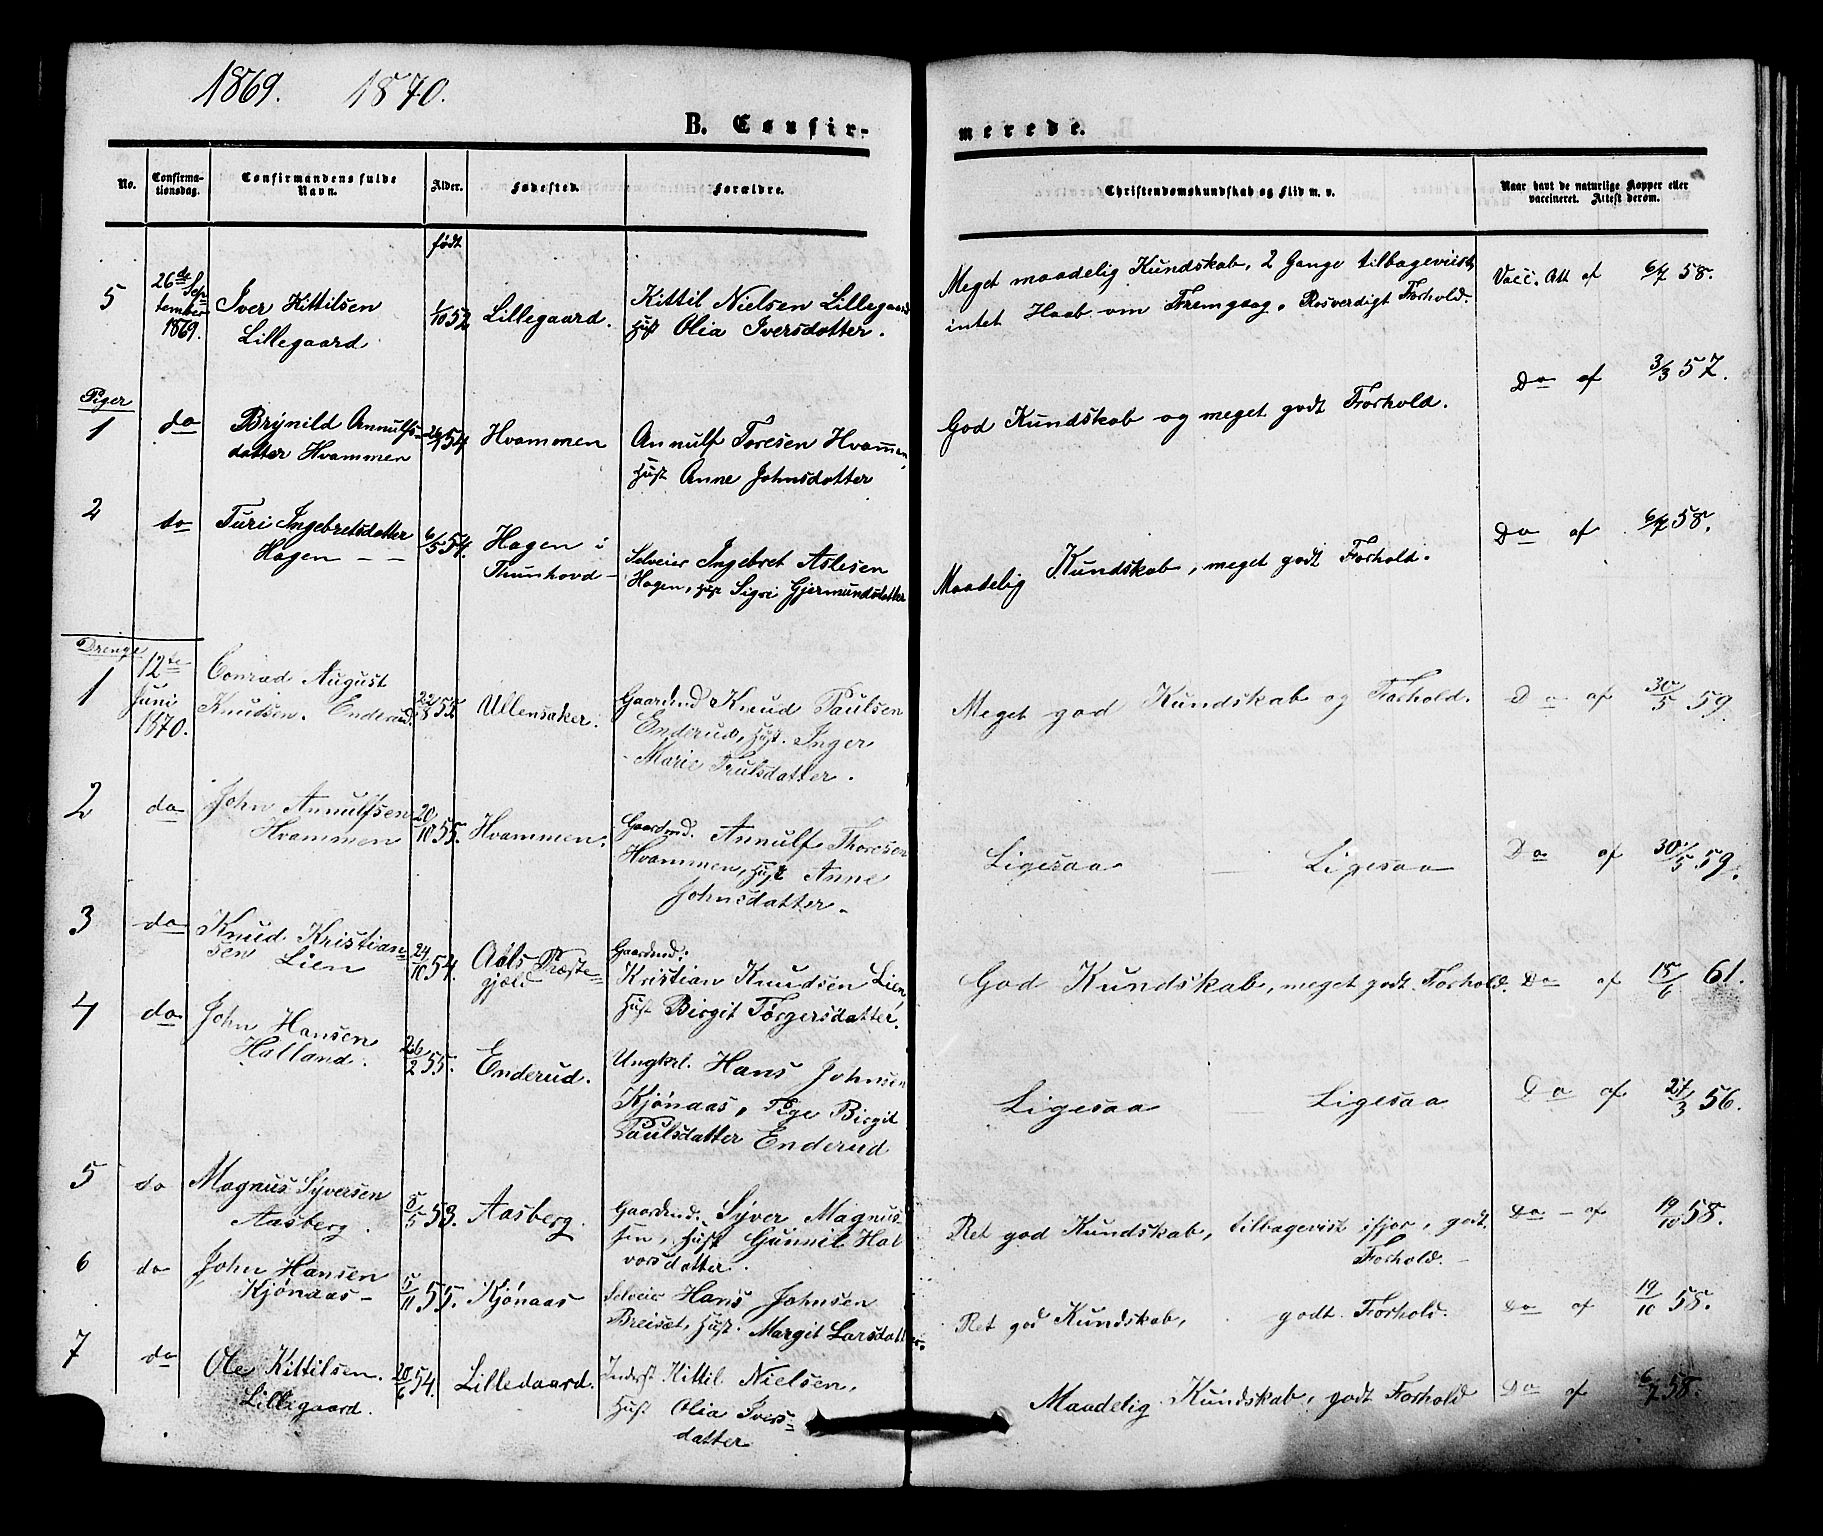 1869. 1870.
B. Confirmerede.
No. Confirmationsdag. Confirmandens fulde Navn. Alder. Fødested. Forældre. Christendomskundskab og Flid m. v. Naar havt de naturlige Kopper eller vaccineret. Attest derom.
født
5 26de September 1869. Iver Kittilsen Lillegaard 1/10 52 Lillegaard. Kittil Nielsen Lillegaard Hust Olia Iversdatter. Meget maadelig Kundskab, 2 Gange tilbageviist, intet Haab om Fremgang. Rosverdigt Forhold. Vacc. Att af 6/7 58.
Piger
1 do Brynild Annulfsdatter Hvammen 26/7 54 Hvammen Annulf Toresen Hvammen, Hust Anne Johnsdatter God Kundskab og meget godt Forhold. Do af 3/3 57.
2 do Turi Ingebretsdatter Hagen 6/5 54. Hagen i Thunhovd Selveier Ingebret Aslesen Hagen, Hust Sigri Gjermundsdatter Maadelig Kundskab, meget godt Forhold. Do af 6/7 58.
Drenge
1 12te Juni 1870. Conrad August Knudsen Enderud. 22/3 55 Ullensaker. Gaardmd Knud Paulsen Enderud, Hust. Inger Marie Trulsdatter. Meget god Kundskab og Forhold. Do af 30/5 59.
2 do John Annulfsen Hvammen 20/10 55. Hvammen. Gaardmd. Annulf Thoresen Hvammen, Hust Anne Johnsdatter. Ligesaa — Ligesaa Do af 30/5 59.
3 do Knud Kristiansen Lien 24/10 54. Aals Præstegjæld Gaardmd. Kristian Knudsen Lien Hust Birgit Torgersdatter. God Kundskab, meget godt Forhold. Do af 15/6 61.
4 do John Hansen Halland. 26/2 55. Enderud. Ungkrl. Hans Johnsen Kjønaas, Pige Birgit Paulsdatter Enderud Ligesaa — Ligesaa Do af 27/3 56.
5 do Magnus Syversen Aasberg. 8/5 53. Aasberg. Gaardmd. Syver Magnussen, Hust Gunnil Halvorsdatter. Ret god Kundskab, tilbagevist ifjor, godt Forhold. Do - af 19/10 58.
6 do John Hansen Kjønaas 5/11 55. Kjønaas Selveier Hans Johnsen Breiset, Hust. Margit Larsdatter. Ret god Kundskab, godt Forhold. Do af 19/10 58.
7 do Ole Kittilsen. Lillegaard. 20/6 54. Lilledaard. Inderst Kittil Nielsen, Hust Olia Iversdatter Maadelig Kundskab, godt Forhold Do af 6/7 58.